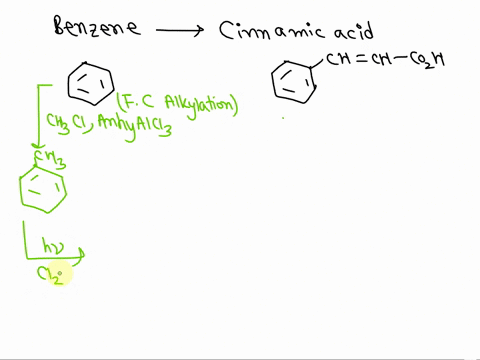 Benzene ⟶ Cinnamic acid
CH=CH-CO2H
(F.C Alkylation)
CH3Cl, AnhyAlCl3
CH3
hν
Cl2